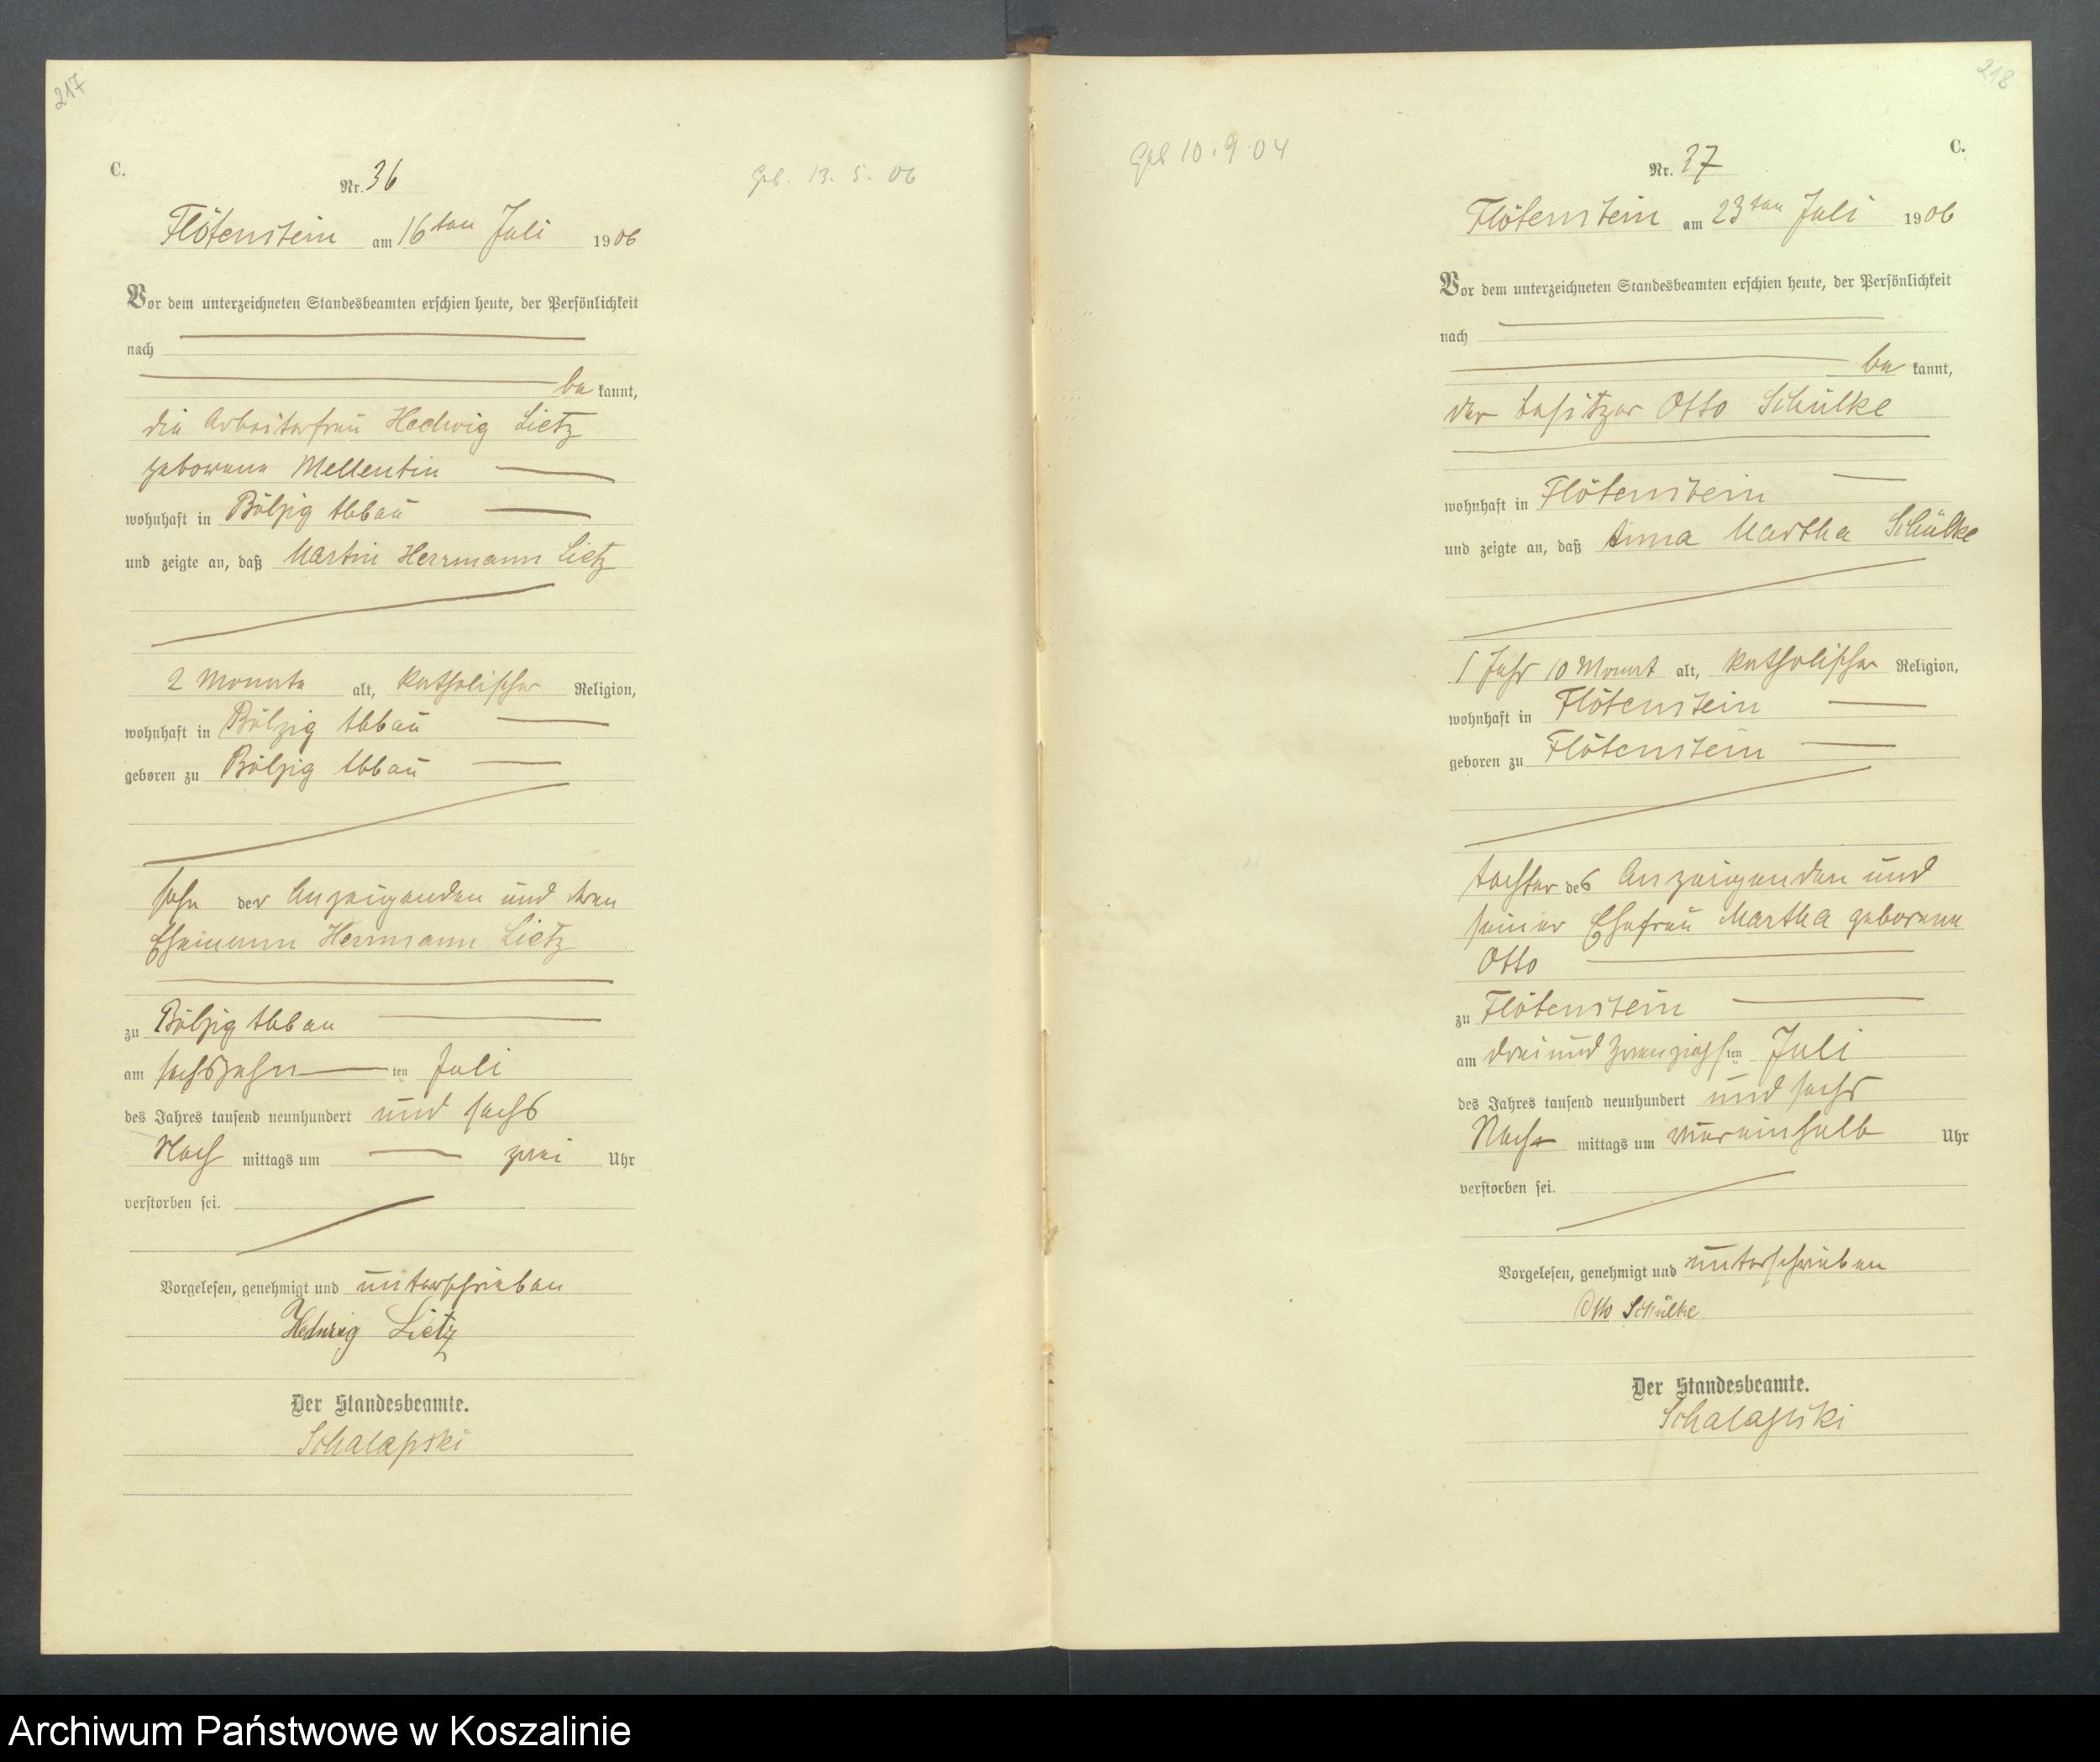 217
C.
Nr. 36
Geb. 13. 5. 06
Flötenstein am 16ten Juli 1906
Vor dem unterzeichneten Standesbeamten erschien heute, der Persönlichkeit
nach
be kannt,
die Arbeiterfrau Hedwig Lietz
geborene Mellentin
wohnhaft in Bölzig Abbau
und zeigte an, daß Martin Herrmann Lietz
2 Monate alt, katholischer Religion,
wohnhaft in Bölzig Abbau
geboren zu Bölzig Abbau
sohn der Anzeigenden und ihren
Ehemann Herrmann Lietz
zu Bölzig Abbau
am sechszehn ten Juli
des Jahres tausend neunhundert und sechs
Nach mittags um zwei Uhr
verstorben sei.
Vorgelesen, genehmigt und unterschrieben
Hedwig Lietz
Der Standesbeamte.
Schalapski
218
C.
Geb 10. 9. 04
Nr. 37
Flötenstein am 23ten Juli 1906
Vor dem unterzeichneten Standesbeamten erschien heute, der Persönlichkeit
nach
be kannt,
der besitzer Otto Schülke
wohnhaft in Flötenstein
und zeigte an, daß Anna Martha Schülke
1 Jahr 10 Monat alt, katholischer Religion,
wohnhaft in Flötenstein
geboren zu Flötenstein
tochter des Anzeigenden und
seiner Ehefrau Martha geborene
Otto
zu Flötenstein
am dreiundzwanzigsten Juli
des Jahres tausend neunhundert und sechs
Nach mittags um viereinhalb Uhr
verstorben sei.
Vorgelesen, genehmigt und unterschrieben
Otto Schülke
Der Standesbeamte.
Schalapski
Archiwum Państwowe w Koszalinie